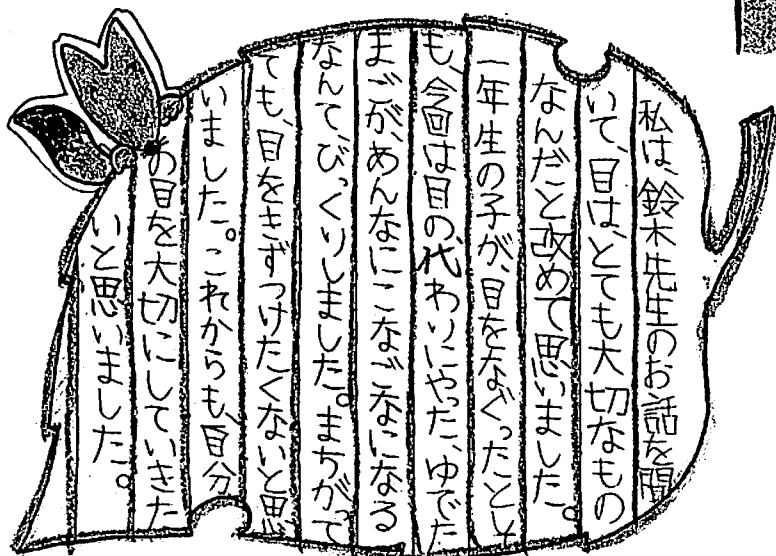 私は、鈴木先生のお話を聞
いて、目は、とても大切なもの
なんだと改めて思いました。
一年生の子が、目をなぐったとし
も、今回は目の代わりにやった、ゆでた
まごが、あんなにこなごなになる
なんて、びっくりしました。まちがって
ても、目をきずつけたくないと思
いました。これからも、自分
の目を大切にしていきた
いと思いました。